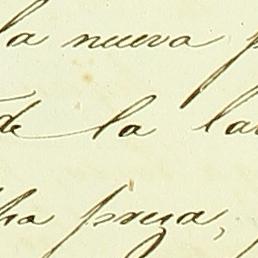 la nueva p
de la la
ha preza,